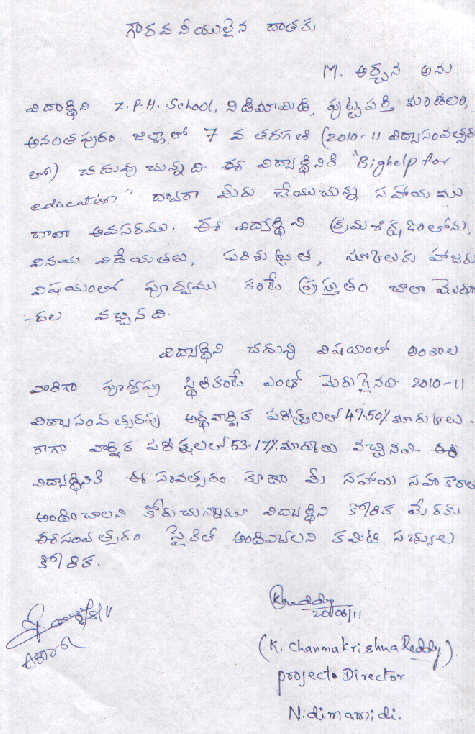 గౌరవనీయులైన దాతకు
M. అర్చన అను
విద్యార్థిని Z.P.H. School, నిడిమామిడి, పుట్టపర్తి మండలం,
అనంతపురం జిల్లాలో 7 వ తరగతి (2010-11 విద్యాసంవత్సరం
లో) చదువుచున్నది. ఈ విద్యార్థినికి "Bighelp for
education" ద్వారా మీరు చేయుచున్న సహాయము
చాలా అవసరము. ఈ విద్యార్థిని క్రమశిక్షణలోను,
వినయ విధేయతలు, పరిశుభ్రత, స్కూలుకు హాజరు
విషయంలో పూర్వము కంటే ప్రస్తుతం చాలా మెరుగు
-దల వచ్చినది.
విద్యార్థిని చదువు విషయంలో అంశాల
వారిగా పూర్వపు స్థితికంటే ఎంతో మెరుగైనది 2010-11
విద్యాసంవత్సరపు అర్థవార్షిక పరీక్షలలో 47.50% మార్కులు.
రాగా వార్షిక పరీక్షలలో 53.17% మార్కులు వచ్చినవి. ఈ
విద్యార్థినికి ఈ సంవత్సరం కూడా మీ సహాయ సహకారాలు
అందించాలని కోరుచున్నాము విద్యార్థిని కోరిక మేరకు
ఈ సంవత్సరం సైకిల్ అందివ్వాలని కమిటి సభ్యుల
కోరిక.
20/06/11
(K. Channakrishna Reddy)
project Director
Nidimamidi.